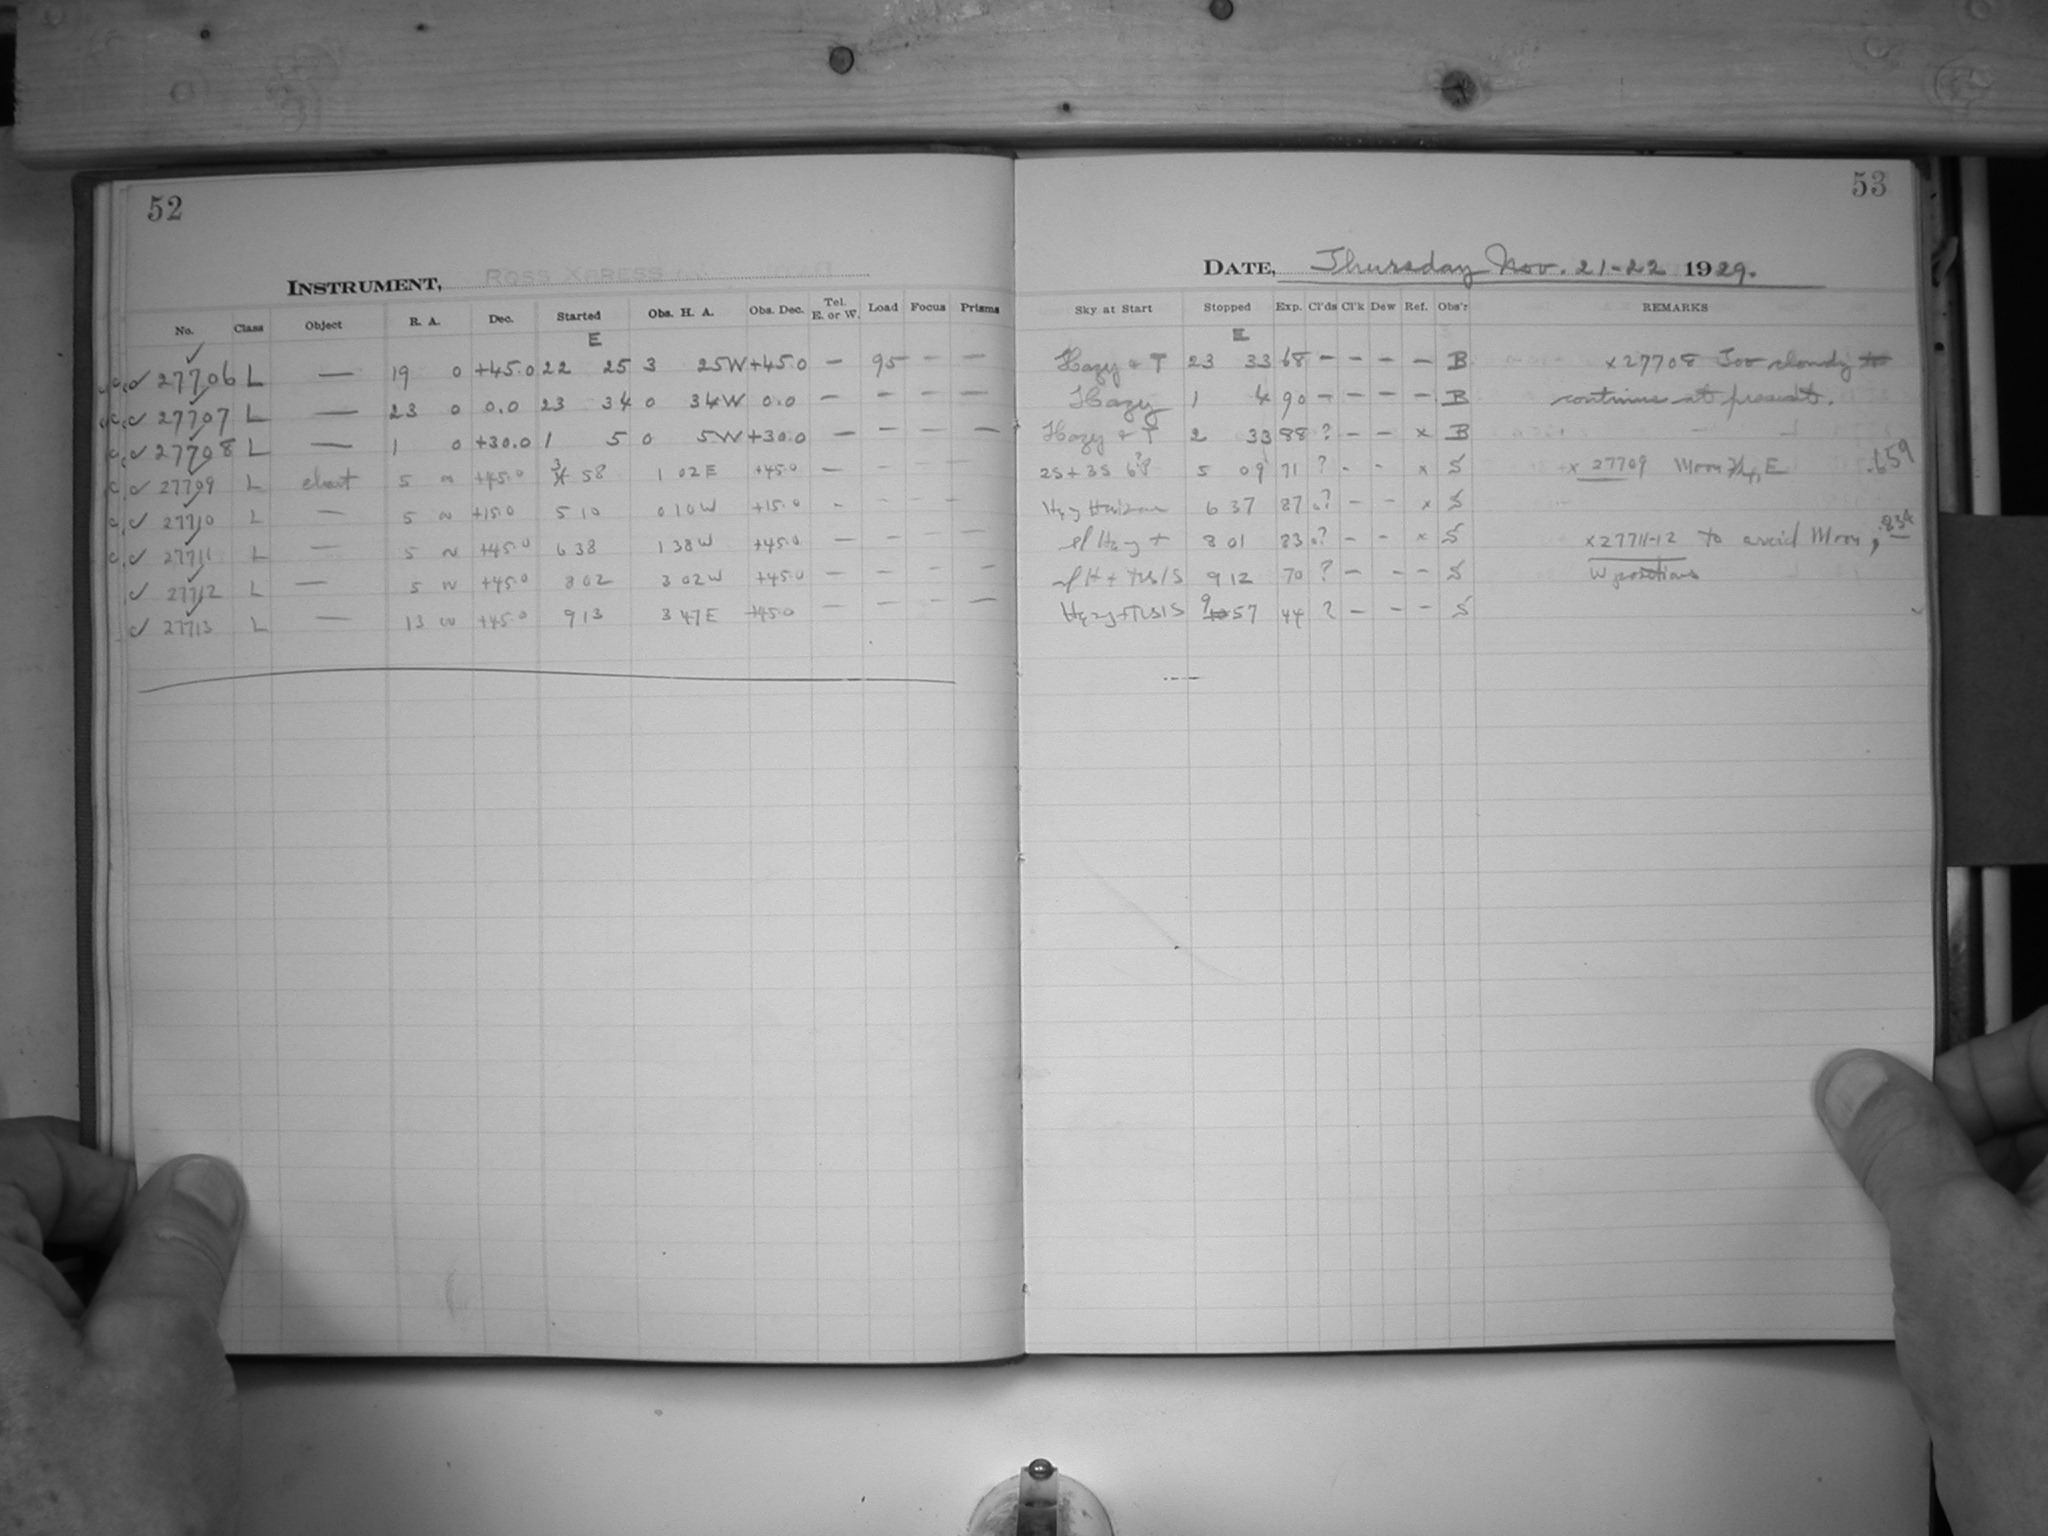 52
INSTRUMENT, ROSS XPRESS
No. Class Object R. A. Dec. Started Obs. H. A. Obs. Dec. Tel. E. or W. Load Focus Prisms
E
27706 L — 19 0 +45.0 22 25 3 25W +45.0 — 95 — —
27707 L — 23 0 0.0 23 34 0 34W 0.0 — — — —
27708 L — 1 0 +30.0 1 5 0 5W +30.0 — — — —
27709 L chart 5 +45.0 3 58 1 02E +45.0 — — — —
27710 L — 5 +15.0 5 10 0 10W +15.0 - - - -
27711 L — 5 +45.0 6 38 1 38W +45.0 — — — —
27712 L — 5 +45.0 8 02 3 02W +45.0 — — — —
27713 L — 13 +45.0 9 13 3 47E +45.0 — — — —
53
DATE, Thursday Nov. 21-22 1929.
Sky at Start Stopped Exp. Cl'ds Cl'k Dew Ref. Obs'r REMARKS
E
Hazy + T 23 33 68 — — — — B x 27708 Too cloudy to
Hazy 1 4 90 — — — — B continue at present.
Hazy + T 2 33 88 ? — — x B
2S + 3S 5 09 71 ? - - x S x 27709 Moon E .659
Hzy Horizon 6 37 87 ? — — x S
Hzy + 8 01 83 ? — — x S x 27711-12 to avoid Moon, .834
9 12 70 ? — — — S W positions
9 57 44 ? — — — S